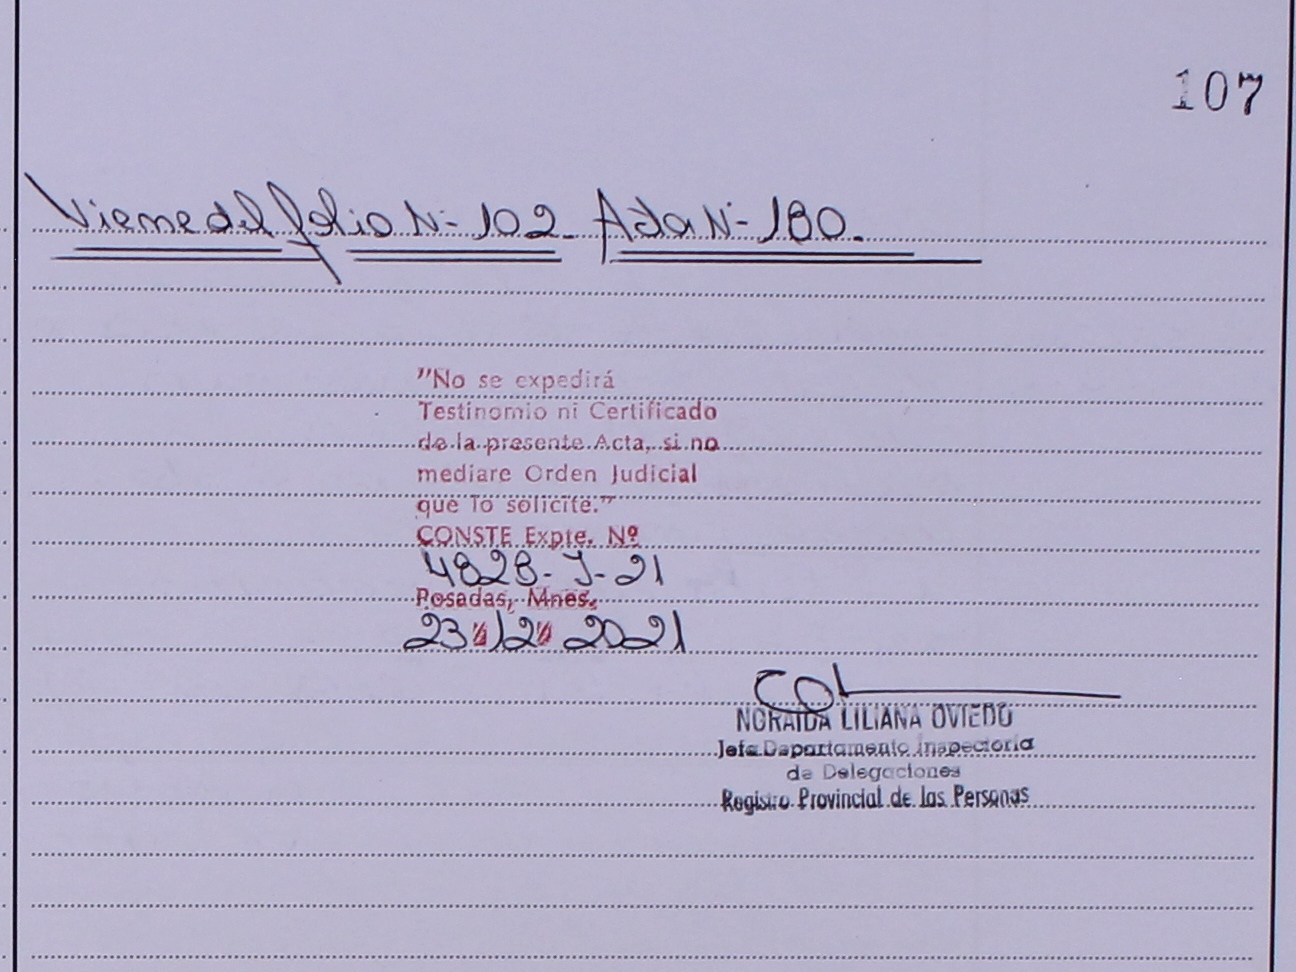 107
Viene del folio N- 102. Acta N- 180.
"No se expedirá
Testinomio ni Certificado
de la presente Acta, si no
mediare Orden Judicial
que lo solicite."
CONSTE Expte. Nº
4828-J-21
Posadas, Mnes.
23/12/2021
NORAIDA LILIANA OVIEDO
Jefa Departamento Inspectoria
de Delegaciones
Registro Provincial de las Personas